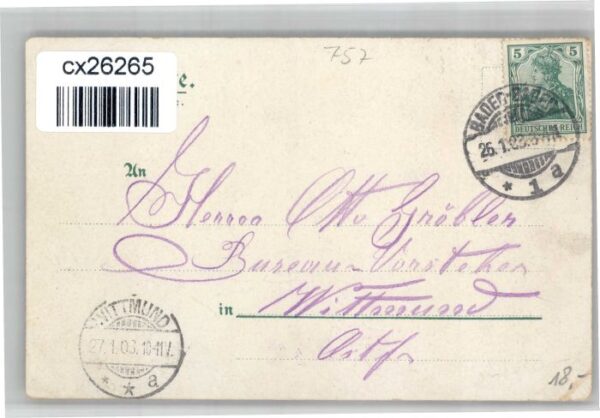 cx26265
757
5
DEUTSCHES REICH
BADEN-BADEN
26.1.03.
* 1 a
An
Herrn Otto Gröbler
Bureau-Vorsteher
in Wittmund
Ostfr
WITTMUND
27.1.03.
* * a
18,-